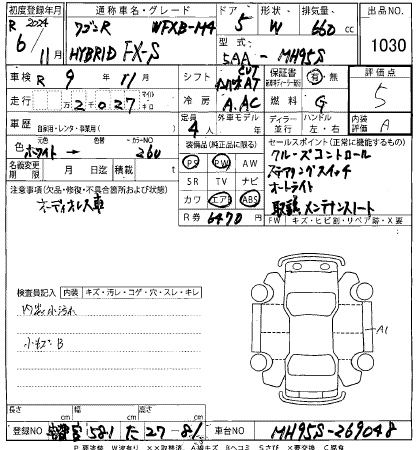 初度登録年月 通称車名・グレード ドア 形状 排気量 出品NO
R 2024 6/11月 ワゴンR WFXB-M4 5 W 660 cc 1030
HYBRID FX-S 型式 5AA-MH95S
車検 R 9年 11月 シフト CVT 保証書 有 無 評価点
走行 万 2千 0 2 7 マイル キロ 冷房 A.AC 燃料 G 5
車歴 自家用・レンタ・事業用( ) 定員 4人 外車モデル ディーラー 並行 ハンドル 左・右 内装評価 A
色 ホワイト → カラーNO 26U
装備品(純正品に限る)
PS PW AW
SR TV ナビ
カワ エアB ABS
R券 6470円
名義変更期限 月 日迄 積載 t
セールスポイント(正常に機能するもの)
クルーズコントロール
ステアリングスイッチ
オートライト
取説 メンテナンスノート
注意事項(欠品・修復・不具合箇所および状態)
オーディオレス車
FW キズ・ヒビ割・リペア跡・X要
検査員記入 内装 キズ・汚レ・コゲ・穴・スレ・キレ
内装小汚れ
小キズB
A1
長さ cm 幅 cm 高さ cm
登録NO 581 た 27-81 車台NO MH95S-269048